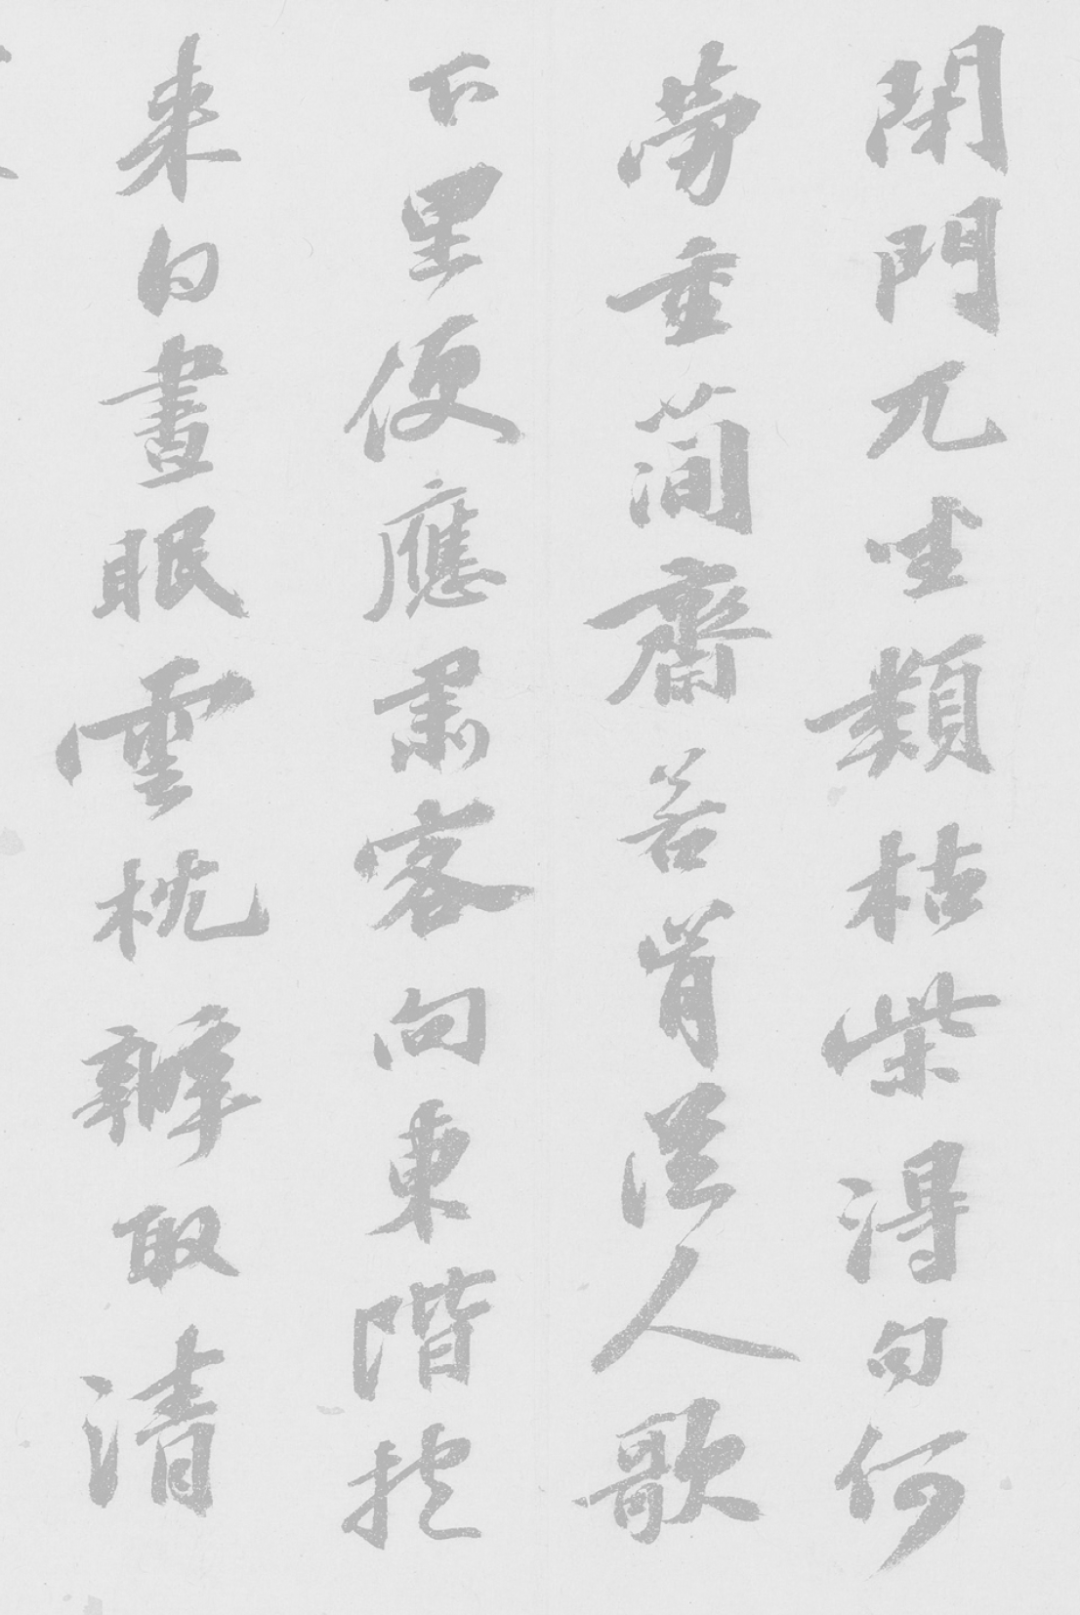 閉門兀坐類枯柴得句何
勞重簡齋若肯從人歌
下里便應肅客向東階抛
来白晝眠雲枕辦取清